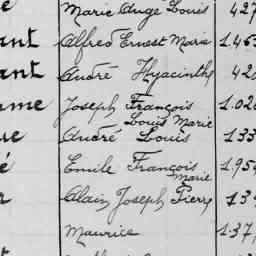 Marie Ange Louis 427
ant Alfred Ernest Marie 1.463
ant André Hyacinthe 420
me Joseph François 1.020
Louis Marie
ue André Louis 133
é Emile François 1.954
Marie
r Alain Joseph Pierre 139
Maurice 1.37